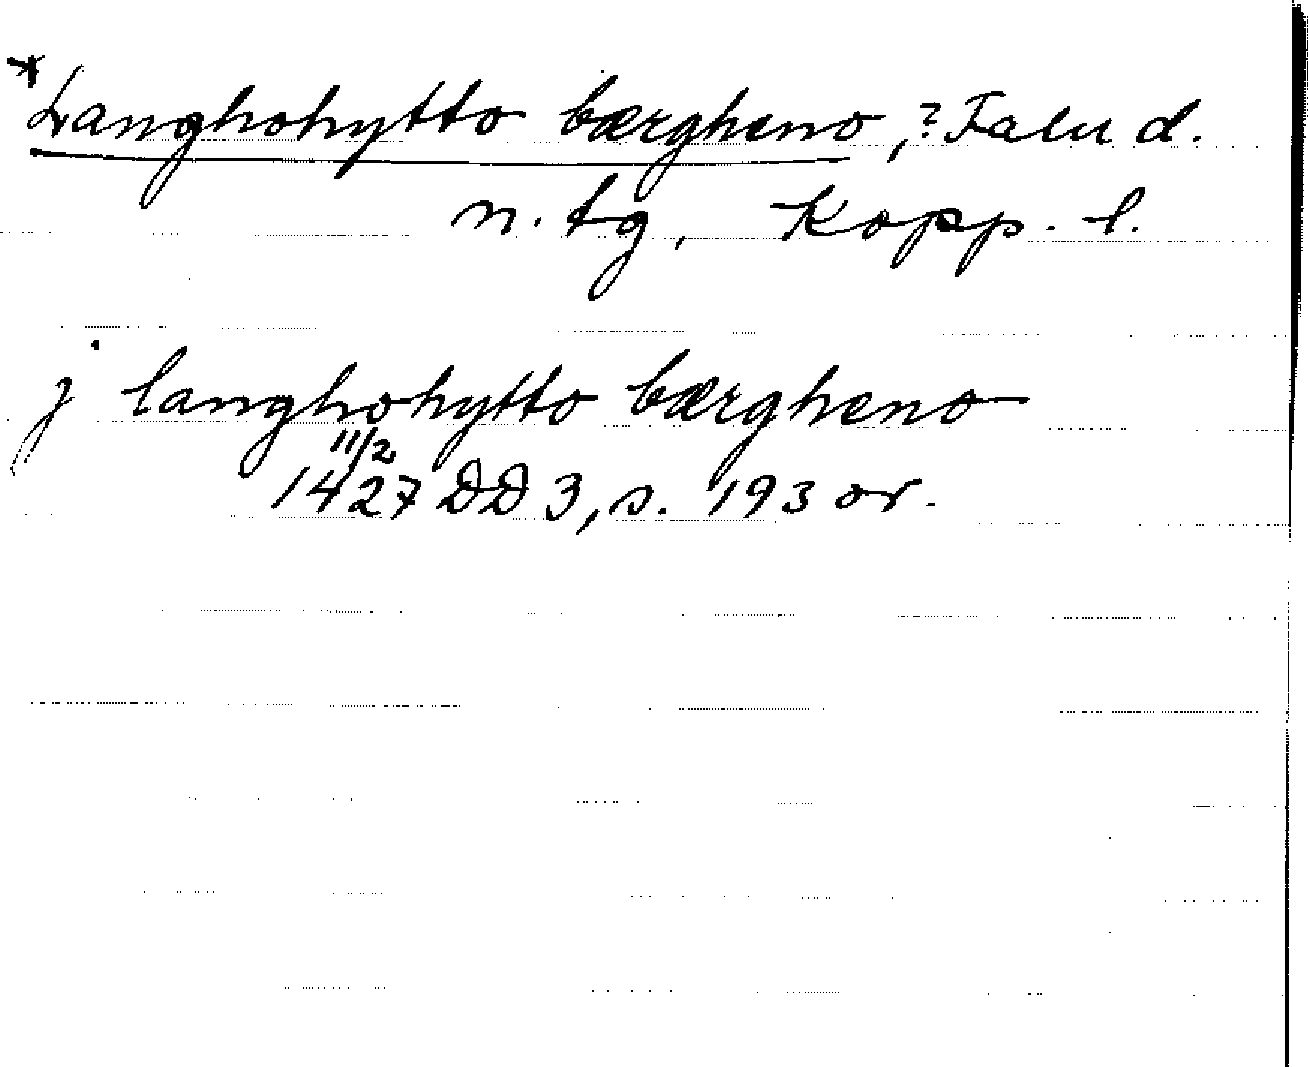 *Langhohytto bærgheno, ? Falu d.
n. tg, Kopp. l.
j langhohytto bærgheno
11/2
1427 DD 3, s. 193 or.